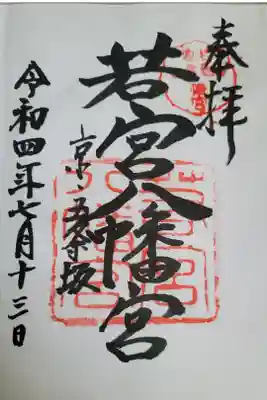 奉拝
若宮八幡宮
京・五条坂
令和四年七月十三日